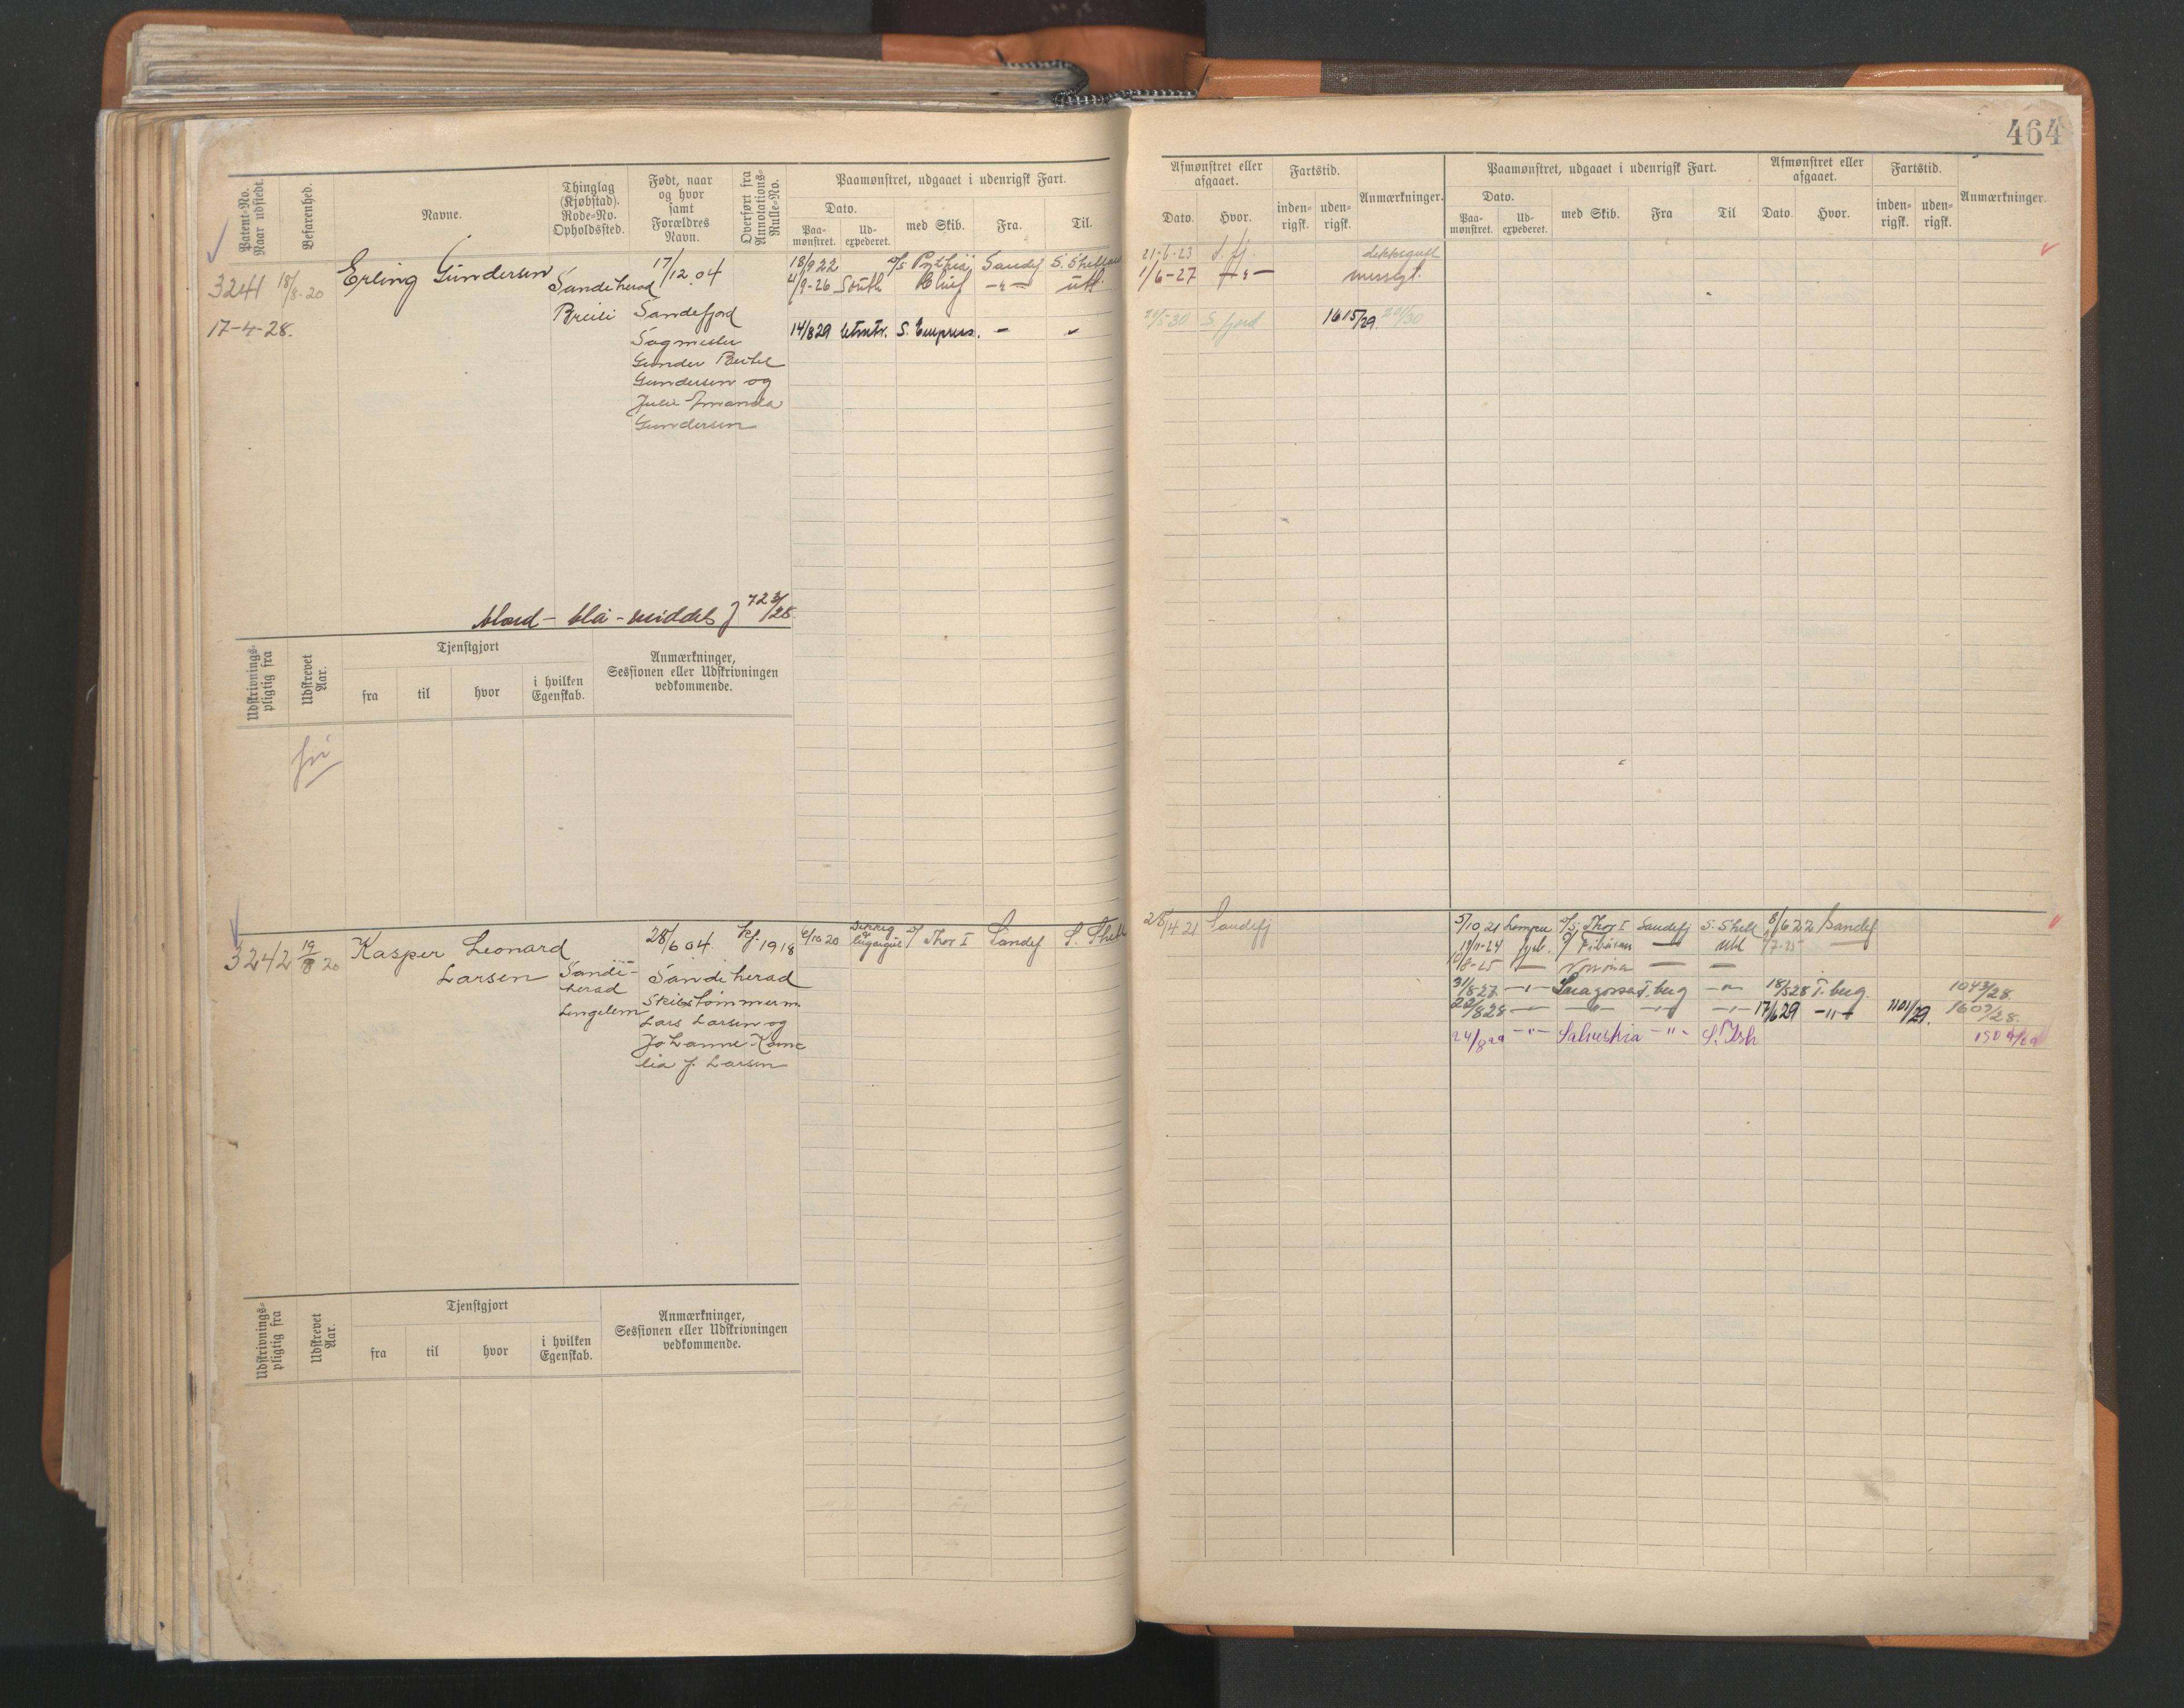 464
Patent-No. Naar udstedt.
Befarenhed.
Navne.
Thinglag (Kjøbstad). Rode-No. Opholdssted.
Født, naar og hvor samt Forældres Navn.
Overført fra Annotations-Rulle-No.
Paamønstret, udgaaet i udenrigsk Fart.
Dato.
Paa-mønstret.
Ud-expederet.
med Skib.
Fra.
Til.
Afmønstret eller afgaaet.
Dato.
Hvor.
Fartstid.
inden-rigsk.
uden-rigsk.
Anmærkninger.
Paamønstret, udgaaet i udenrigsk Fart.
Dato.
Paa-mønstret.
Ud-expederet.
med Skib.
Fra
Til
Afmønstret eller afgaaet.
Dato.
Hvor.
Fartstid.
inden-rigsk.
uden-rigsk.
Anmærkninger.
3241 18/8-20 Erling Gundersen
17-4-28.
Sandeherad
Breili
17/12.04
Sandefjord
Sagmester
Gunder Bertel
Gundersen og
Julie Amanda
Gundersen
18/9 22 Pythia Sandef S. Shetland
/9-26 South Chief -"- utl.
14/8 29 S. Empress. - "
21-6-23 S. fj.
1/6-27 -"-
-30 S. fjord 1615/29
blond - blå - middels 723/28.
Udskrivnings-pligtig fra
Udskrevet Aar.
Tjenstgjort
fra
til
hvor
i hvilken Egenskab.
Anmærkninger, Sessionen eller Udskrivningen vedkommende.
fri
3242 19/8 20 Kasper Leonard
Larsen
Sande-
herad
28/6 04. kf. 1918
Sandeherad
Skibstømmerm.
Lars Larsen og
Johanne Korne
lia f. Larsen
6/10 20 Thor I Sandef S. Shetl
28/4 21 Sandefj
5/10 21 Lempe Thor I Sandefj S. Shetl 8/6 22 Sandef
19/11-24 fyrb. Utl
/8-25
31/8-27 -"- Saragossa T. berg -"- 18/5 28 T. berg. 1043/28.
22/8 28 -"- -"- -"- -"- 17/6 29 -"- 1101/29. 1609/28.
24/8 29 -"- -"- S. Ish
Udskrivnings-pligtig fra
Udskrevet Aar.
Tjenstgjort
fra
til
hvor
i hvilken Egenskab.
Anmærkninger, Sessionen eller Udskrivningen vedkommende.